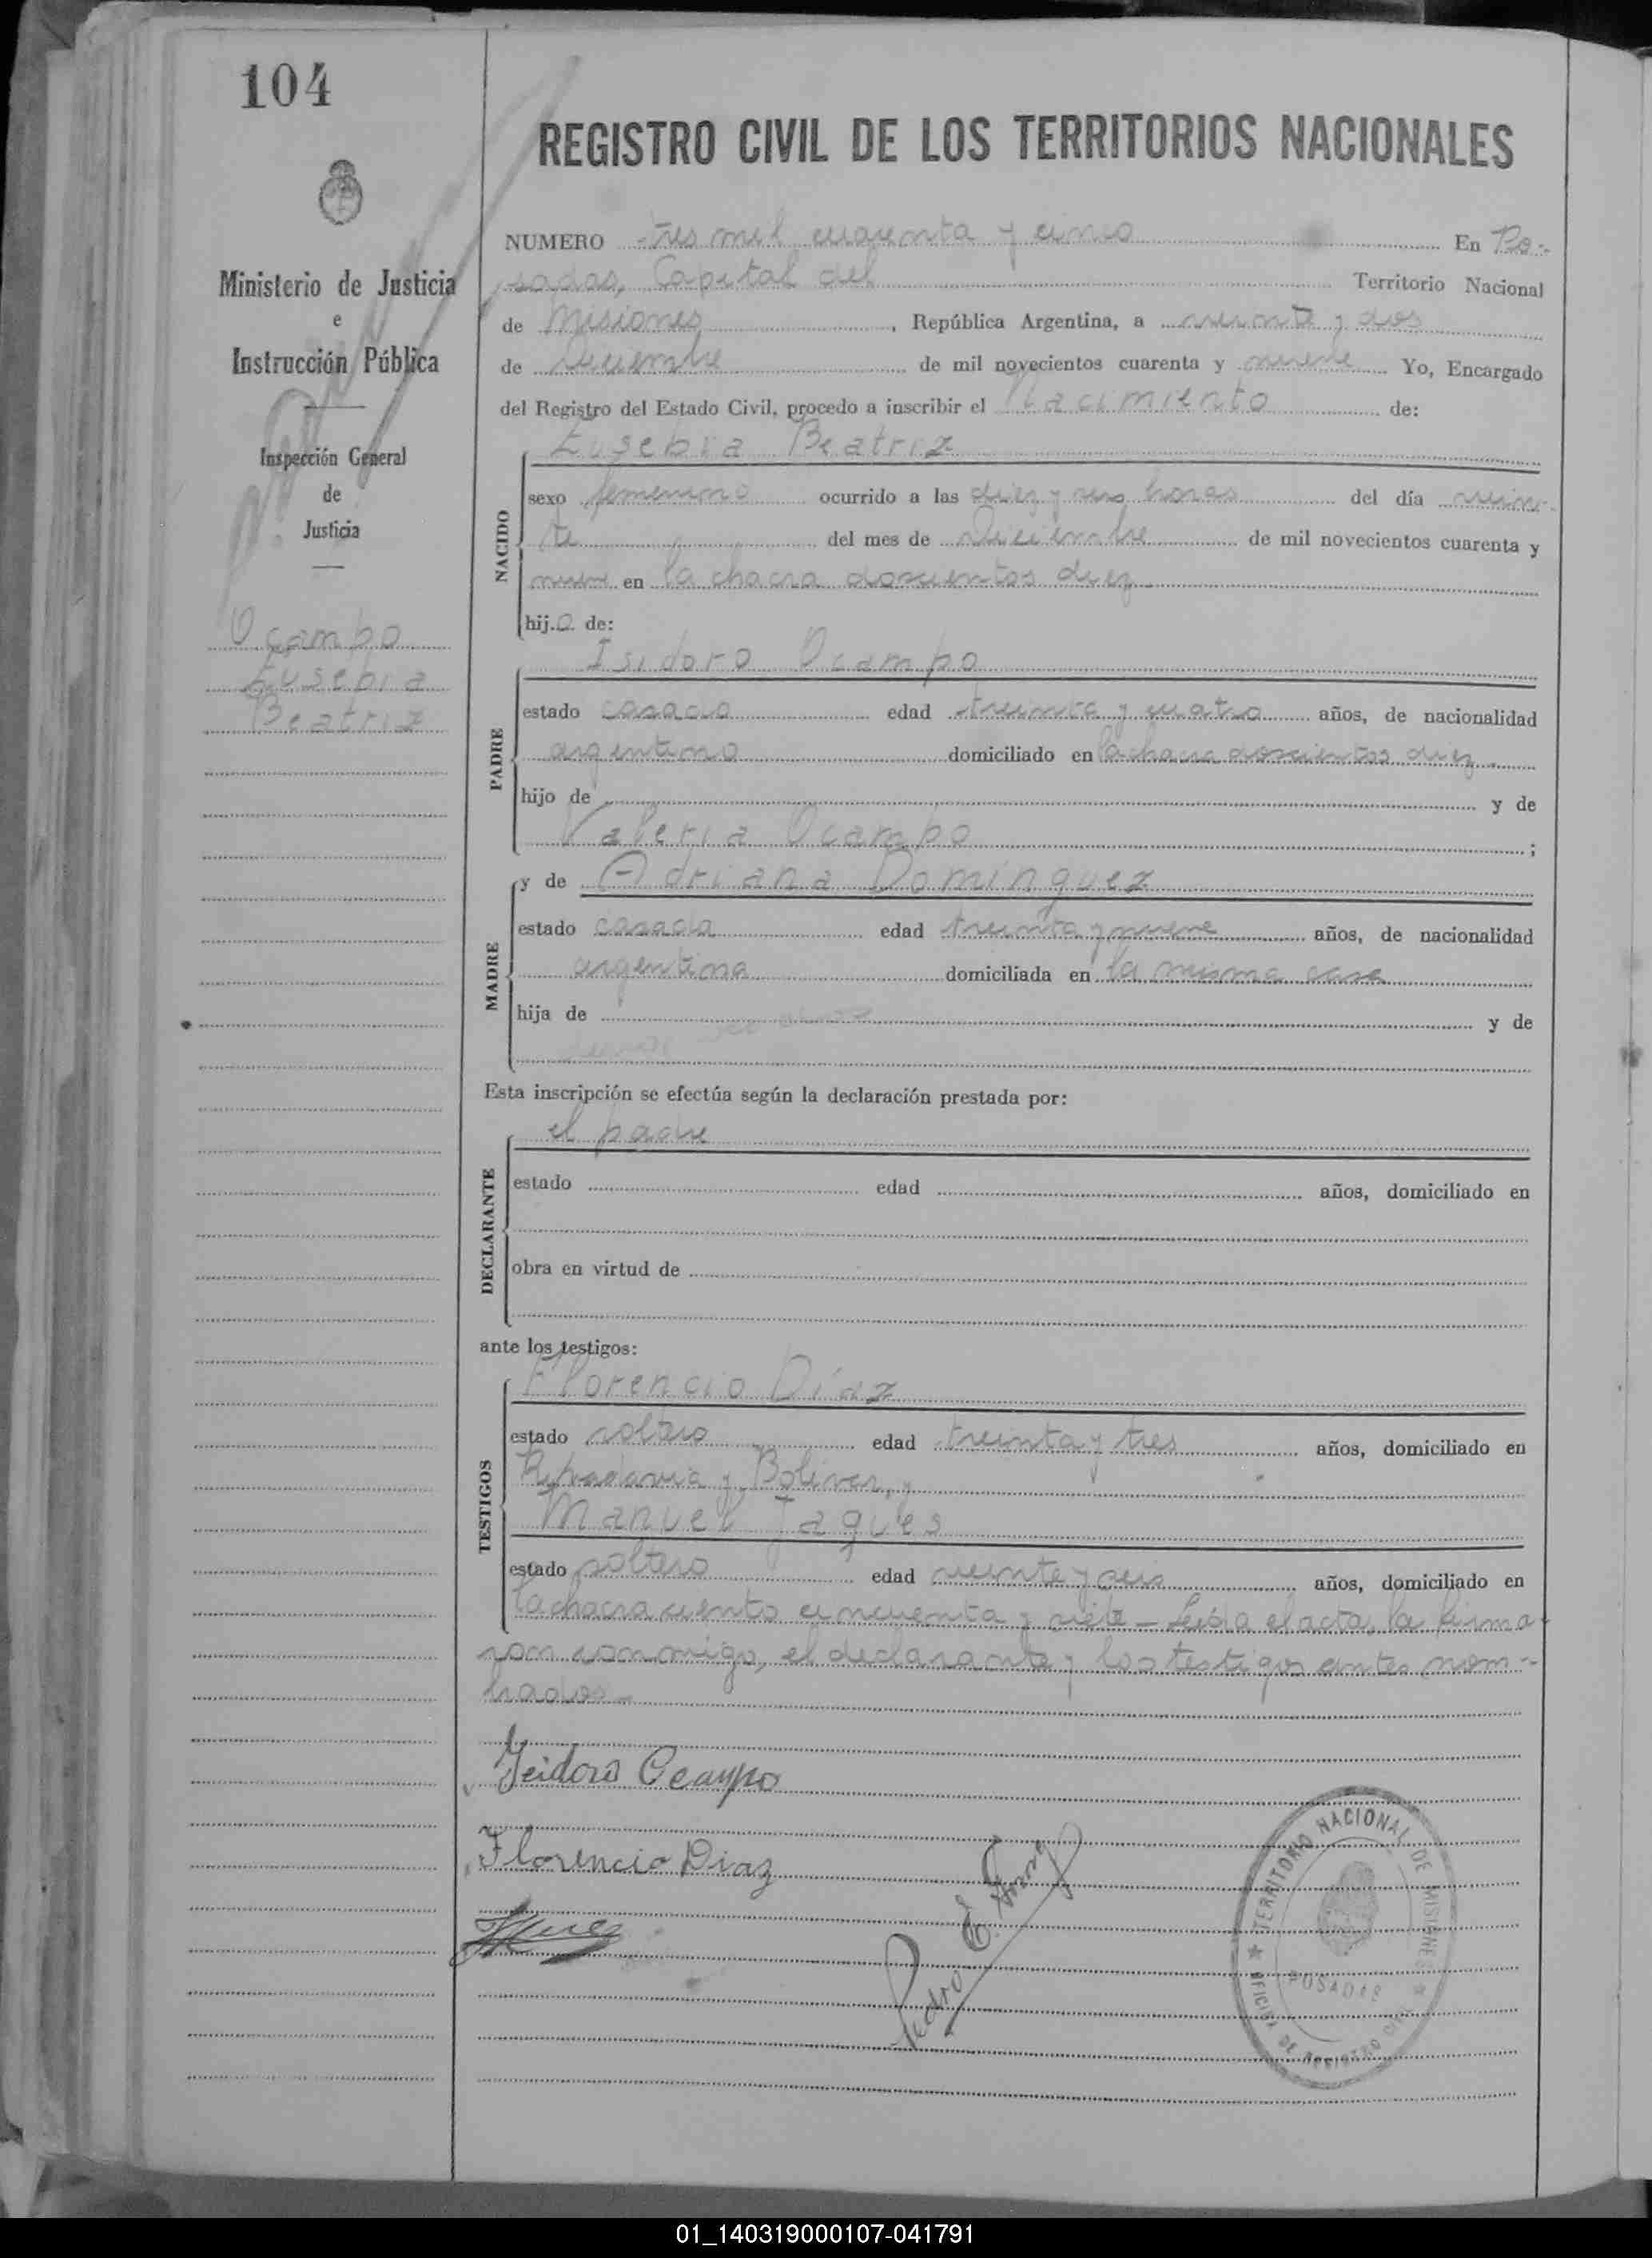 104
REGISTRO CIVIL DE LOS TERRITORIOS NACIONALES
Ministerio de Justicia
e
Instrucción Pública
Inspección General
de
Justicia
Ocampo
Eusebia
Beatriz
NUMERO tres mil cuarenta y cinco En Po-
sadas, Capital del Territorio Nacional
de Misiones, República Argentina, a veinte y dos
de Diciembre de mil novecientos cuarenta y nueve Yo, Encargado
del Registro del Estado Civil, procedo a inscribir el Nacimiento de:
Eusebia Beatriz
NACIDO
sexo femenino ocurrido a las diez y seis horas del día vein-
te del mes de Diciembre de mil novecientos cuarenta y
nueve en la chacra doscientos diez
hija de:
Isidoro Ocampo
PADRE
estado casado edad treinta y cuatro años, de nacionalidad
argentino domiciliado en la chacra doscientos diez
hijo de y de
Valeria Ocampo ;
y de Adriana Dominguez
MADRE
estado casada edad treinta y nueve años, de nacionalidad
argentina domiciliada en la misma casa
hija de y de
Esta inscripción se efectúa según la declaración prestada por:
el padre
DECLARANTE
estado edad años, domiciliado en
obra en virtud de
ante los testigos:
Florencio Díaz
TESTIGOS
estado soltero edad treinta y tres años, domiciliado en
y Bolivar, y
Manuel Jaques
estado soltero edad veinte y seis años, domiciliado en
la chacra ciento cincuenta y siete — Leída el acta, la firma-
ron conmigo, el declarante y los testigos antes nom-
brados —
Isidoro Ocampo
Florencio Diaz
Pedro E.
TERRITORIO NACIONAL DE MISIONES
POSADAS
OFICINA DE REGISTRO CIVIL
01_140319000107-041791